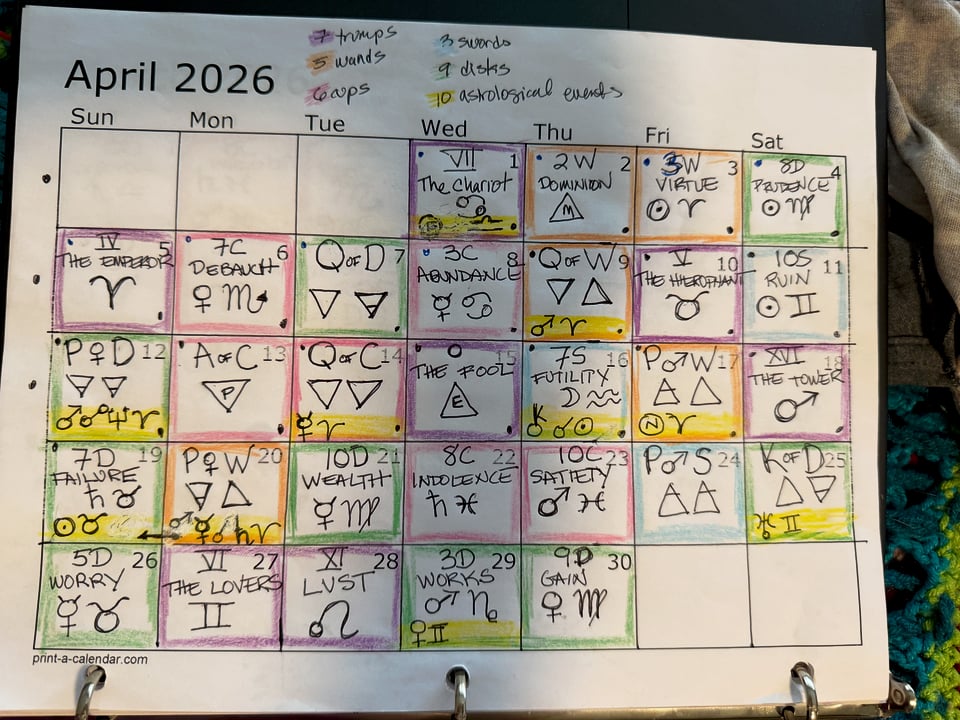 7 trumps
5 wands
6 cups
3 swords
9 disks
10 astrological events
April 2026
Sun Mon Tue Wed Thu Fri Sat
VII 1
The Chariot
♋
2W 2
DOMINION
M
3W 3
VIRTUE
☉ ♈
8D 4
PRUDENCE
☉ ♍
IV 5
THE EMPEROR
♈
7C 6
DEBAUCH
♀ ♏
Q OF D 7
▽
3C 8
ABUNDANCE
☿ ♋
Q OF W 9
▽ △
♂ ♈
V 10
THE HIEROPHANT
♉
10S 11
RUIN
☉ ♊
P♀D 12
♂☌♆♈
A OF C 13
P
Q OF C 14
▽▽
☿ ♈
0 15
THE FOOL
E
7S 16
FUTILITY
☽ ♒
☌ ☉
P♂W 17
△
N ♈
XVI 18
THE TOWER
♂
7D 19
FAILURE
♄ ♉
☉ ♉
P♀W 20
△
♂ ☿ ☌ ♄ ♈
10D 21
WEALTH
☿ ♍
8C 22
INDOLENCE
♄ ♓
10C 23
SATIETY
♂ ♓
P♂S 24
K OF D 25
△
♅ ♊
5D 26
WORRY
☿ ♉
VI 27
THE LOVERS
♊
XI 28
LUST
♌
3D 29
WORKS
♂ ♑
♀ ♊
9D 30
GAIN
♀ ♍
print-a-calendar.com